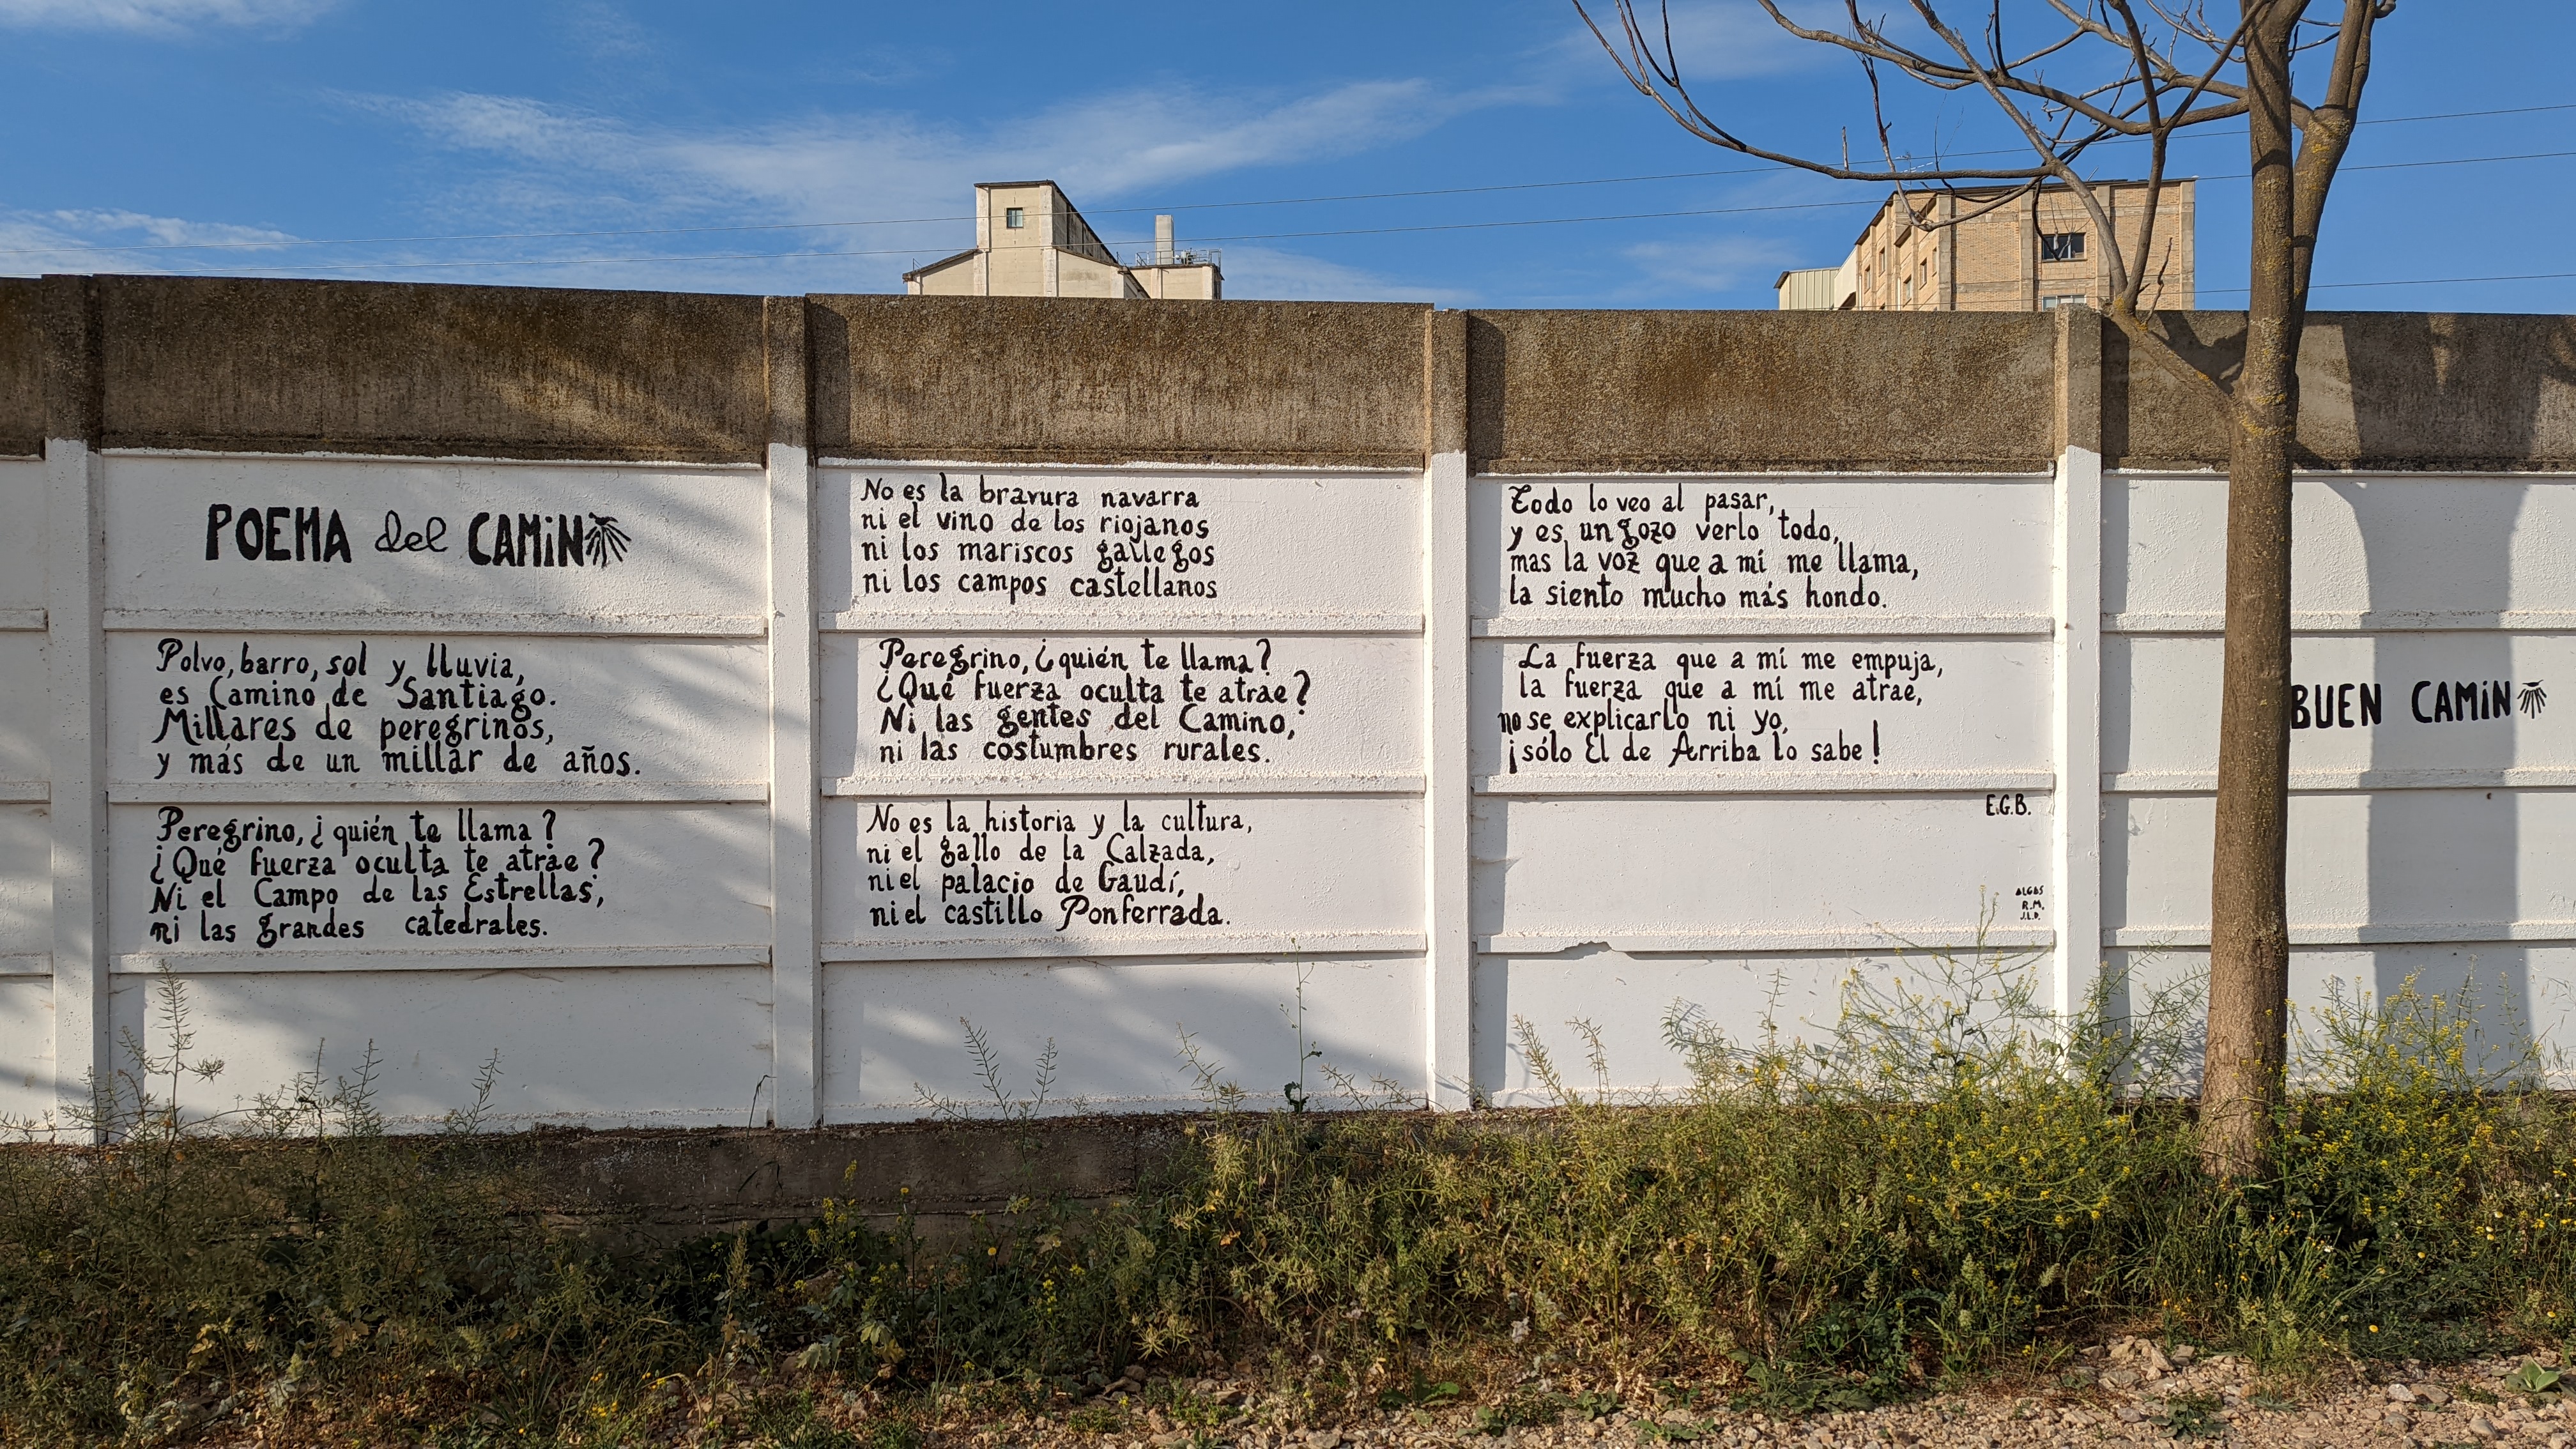 POEMA del CAMiNO
Polvo, barro, sol y lluvia,
es Camino de Santiago.
Millares de peregrinos,
y más de un millar de años.
Peregrino, ¿quién te llama?
¿Qué fuerza oculta te atrae?
Ni el Campo de las Estrellas,
ni las grandes catedrales.
No es la bravura navarra
ni el vino de los riojanos
ni los mariscos gallegos
ni los campos castellanos
Peregrino, ¿quién te llama?
¿Qué fuerza oculta te atrae?
Ni las gentes del Camino,
ni las costumbres rurales.
No es la historia y la cultura,
ni el gallo de la Calzada,
ni el palacio de Gaudí,
ni el castillo Ponferrada.
Todo lo veo al pasar,
y es un gozo verlo todo,
mas la voz que a mí me llama,
la siento mucho más hondo.
La fuerza que a mí me empuja,
la fuerza que a mí me atrae,
no se explicarlo ni yo,
¡sólo El de Arriba lo sabe!
E.G.B.
ALGBS
R.M.
J.L.D.
BUEN CAMiNO